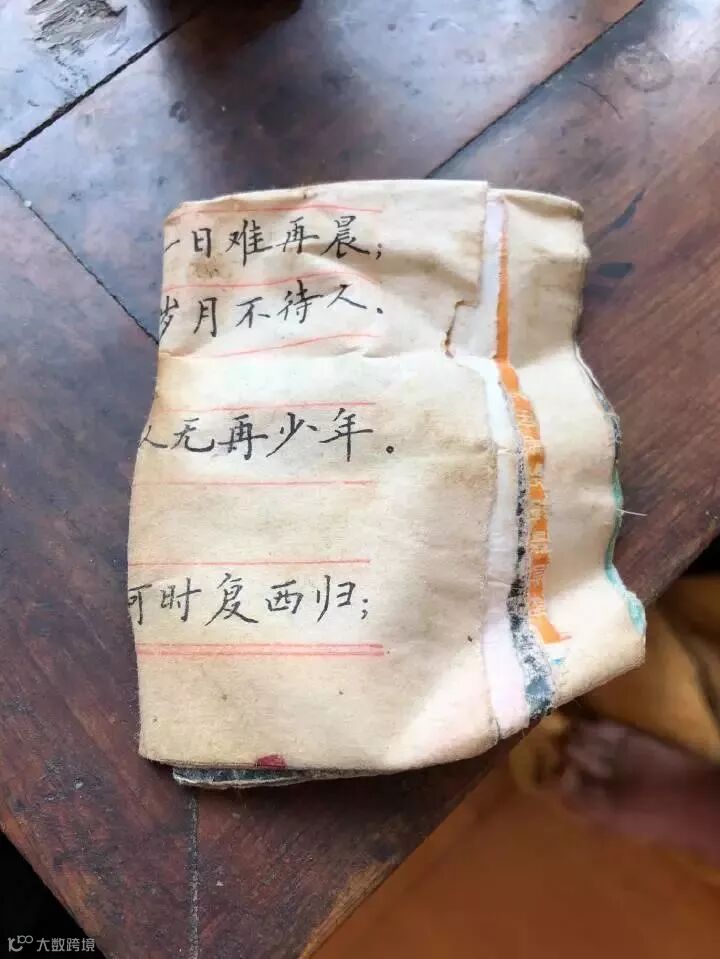 一日难再晨；
岁月不待人．
人无再少年。
何时复西归；
大数跨境